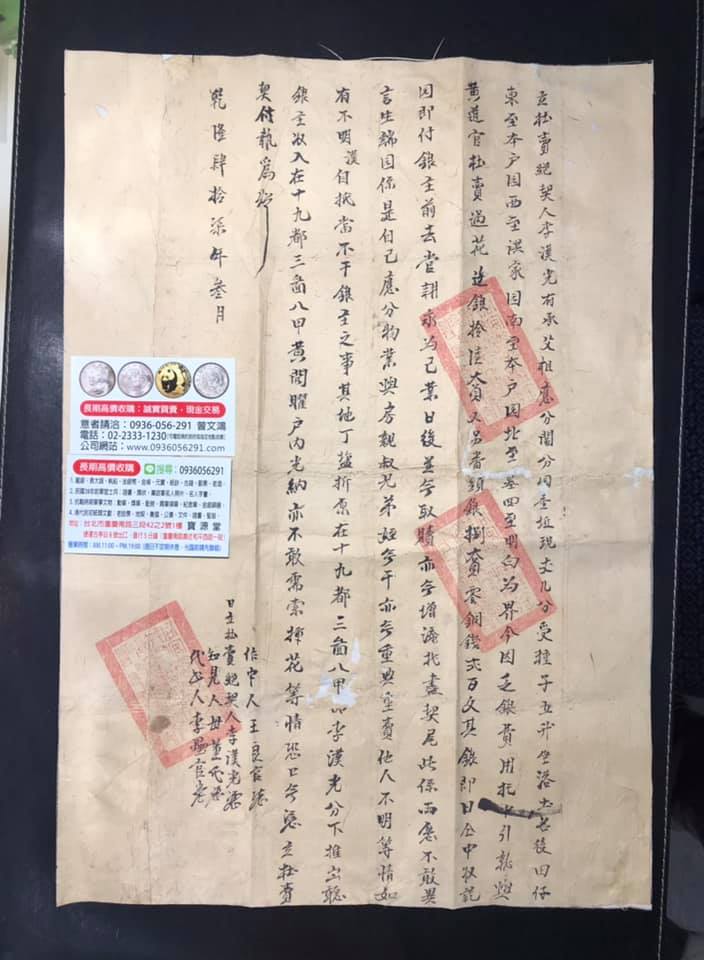 立杜賣絕契人李漢光有承父祖應分鬮分內壹坵現丈九分受種子五升坐落土名後田仔
東至本戶田西至洪家田南至本戶田北至墓四至明白為界今因乏銀費用托中引就與
黃道官杜賣過花邊銀拾伍大員又另番頭銀捌大員零銅錢弍百文其銀即日仝中收訖
田即付銀主前去掌耕永為己業日後並無取贖亦無增添找盡契尾此係兩應不敢異
言生端田係是自己應分物業與房親叔兄弟姪無干亦無重典重賣他人不明等情如
有不明漢自抵當不干銀主之事其地丁鹽折原在十九都三啚八甲 李漢光分下推出聽
銀主收入在十九都三啚八甲黃開曜戶內光納亦不敢需索揮花等情恐口無憑立杜賣
契付執為炤
乾隆肆拾柒年叁月
日立杜賣絕契人李漢光
作中人王良官
知見人母董氏
代書人李 官
長期高價收購：誠實買賣，現金交易
意者請洽：0936-056-291 曾文鴻
電話：02-2333-1230
公司網站：www.0936056291.com
長期高價收購 搜尋：0936056291
地址：台北市重慶南路三段42之2號1樓 寶源堂